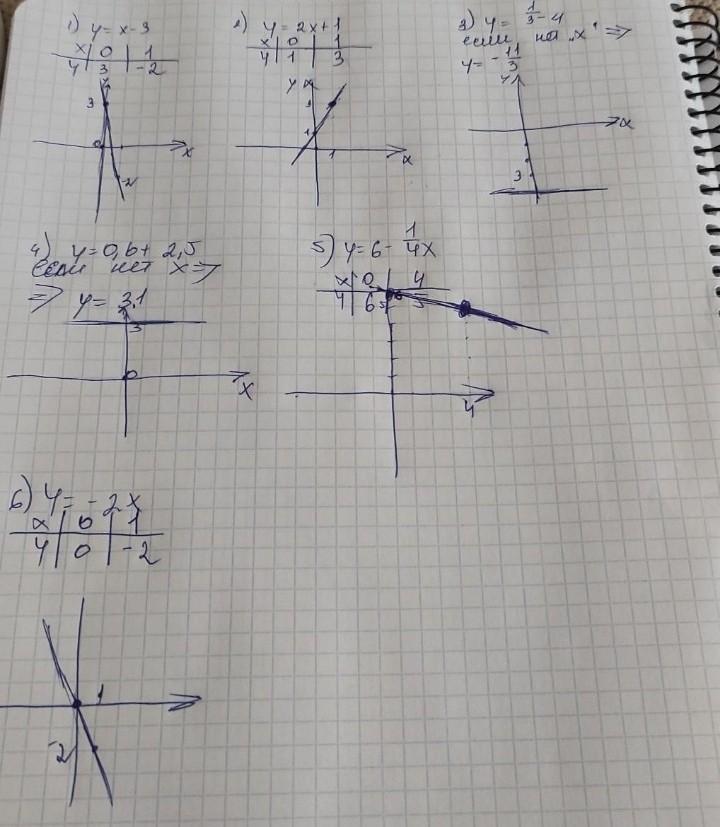 1) y = x - 3
x | 0 | 1
y | 3 | -2
y
3
0
x
-2
2) y = 2x + 1
x | 0 | 1
y | 1 | 3
y
3
1
1
x
3) y = 1/3 - 4
если нет "x" =>
y = - 11/3
y
x
3
4) y = 0,6 + 2,5
если нет x =>
=> y = 3,1
3
0
x
5) y = 6 - 1/4x
x | 0 | 4
y | 6 | 5
5
6
4
6) y = -2x
x | 0 | 1
y | 0 | -2
1
-2